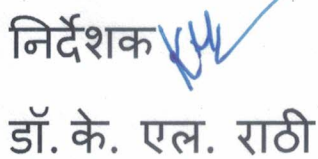 निर्देशक
डॉ. के. एल. राठी